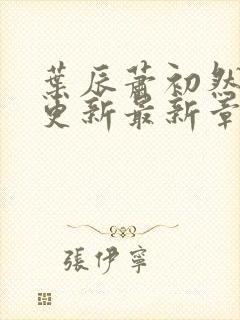 葉辰蕭初然
更新最新章
張伊寧